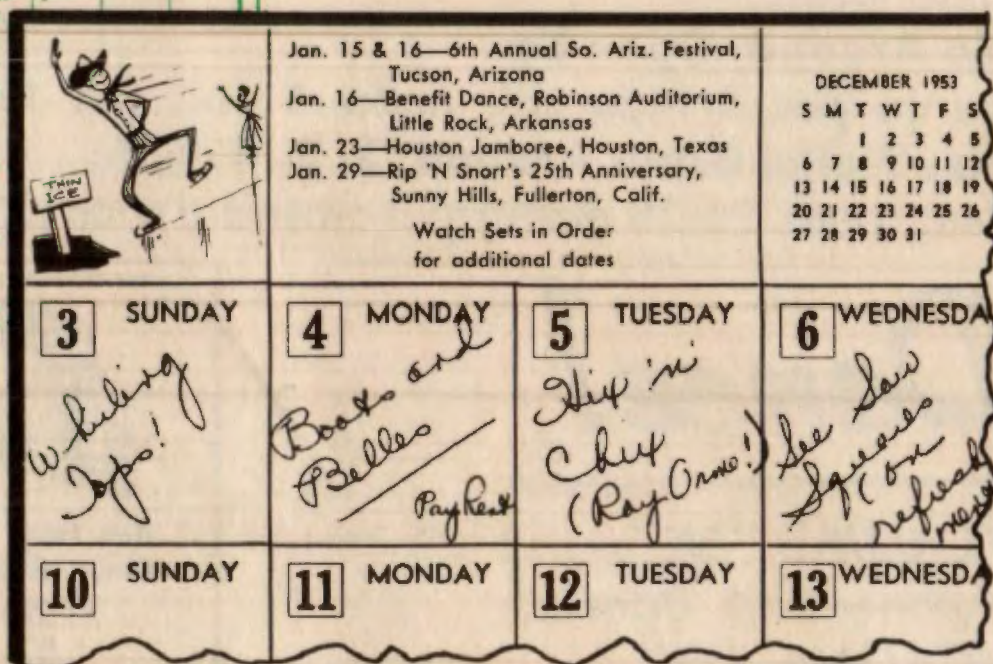 THIN
ICE
Jan. 15 & 16—6th Annual So. Ariz. Festival,
Tucson, Arizona
Jan. 16—Benefit Dance, Robinson Auditorium,
Little Rock, Arkansas
Jan. 23—Houston Jamboree, Houston, Texas
Jan. 29—Rip 'N Snort's 25th Anniversary,
Sunny Hills, Fullerton, Calif.
Watch Sets in Order
for additional dates
DECEMBER 1953
S M T W T F S
1 2 3 4 5
6 7 8 9 10 11 12
13 14 15 16 17 18 19
20 21 22 23 24 25 26
27 28 29 30 31
3 SUNDAY
Whirling
Tops!
4 MONDAY
Boots and
Belles
Pay Rent
5 TUESDAY
Hix 'n'
Chix
(Ray Orme!)
6 WEDNESDA
See Saw
Squares
(on
refresh
ments
10 SUNDAY
11 MONDAY
12 TUESDAY
13 WEDNESDA